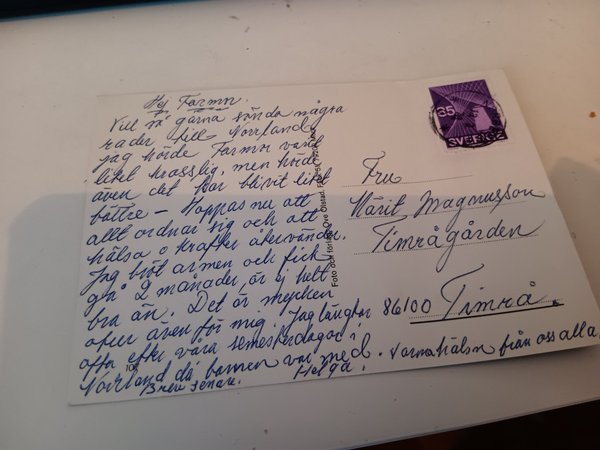 Hej Farmor.
Vill så gärna sända några
rader till Norrland
jag hörde Farmor varit
litet krasslig, men hörde
även det har blivit litet
bättre – Hoppas nu att
allt ordnar sig och att
hälsa o krafter återvänder.
Jag bröt armen och fick
gå 2 månader, är ej helt
bra än. Det är mycken
även för mig. Jag längtar
ofta efter våra semesterdagar i
Norrland då barnen var med.
Brev senare. Helga.
Varma hälsn från oss alla.
Foto och förlag: Ove
35
SVERIGE
Fru
Märit Magnusson
Timrågården
86100 Timrå